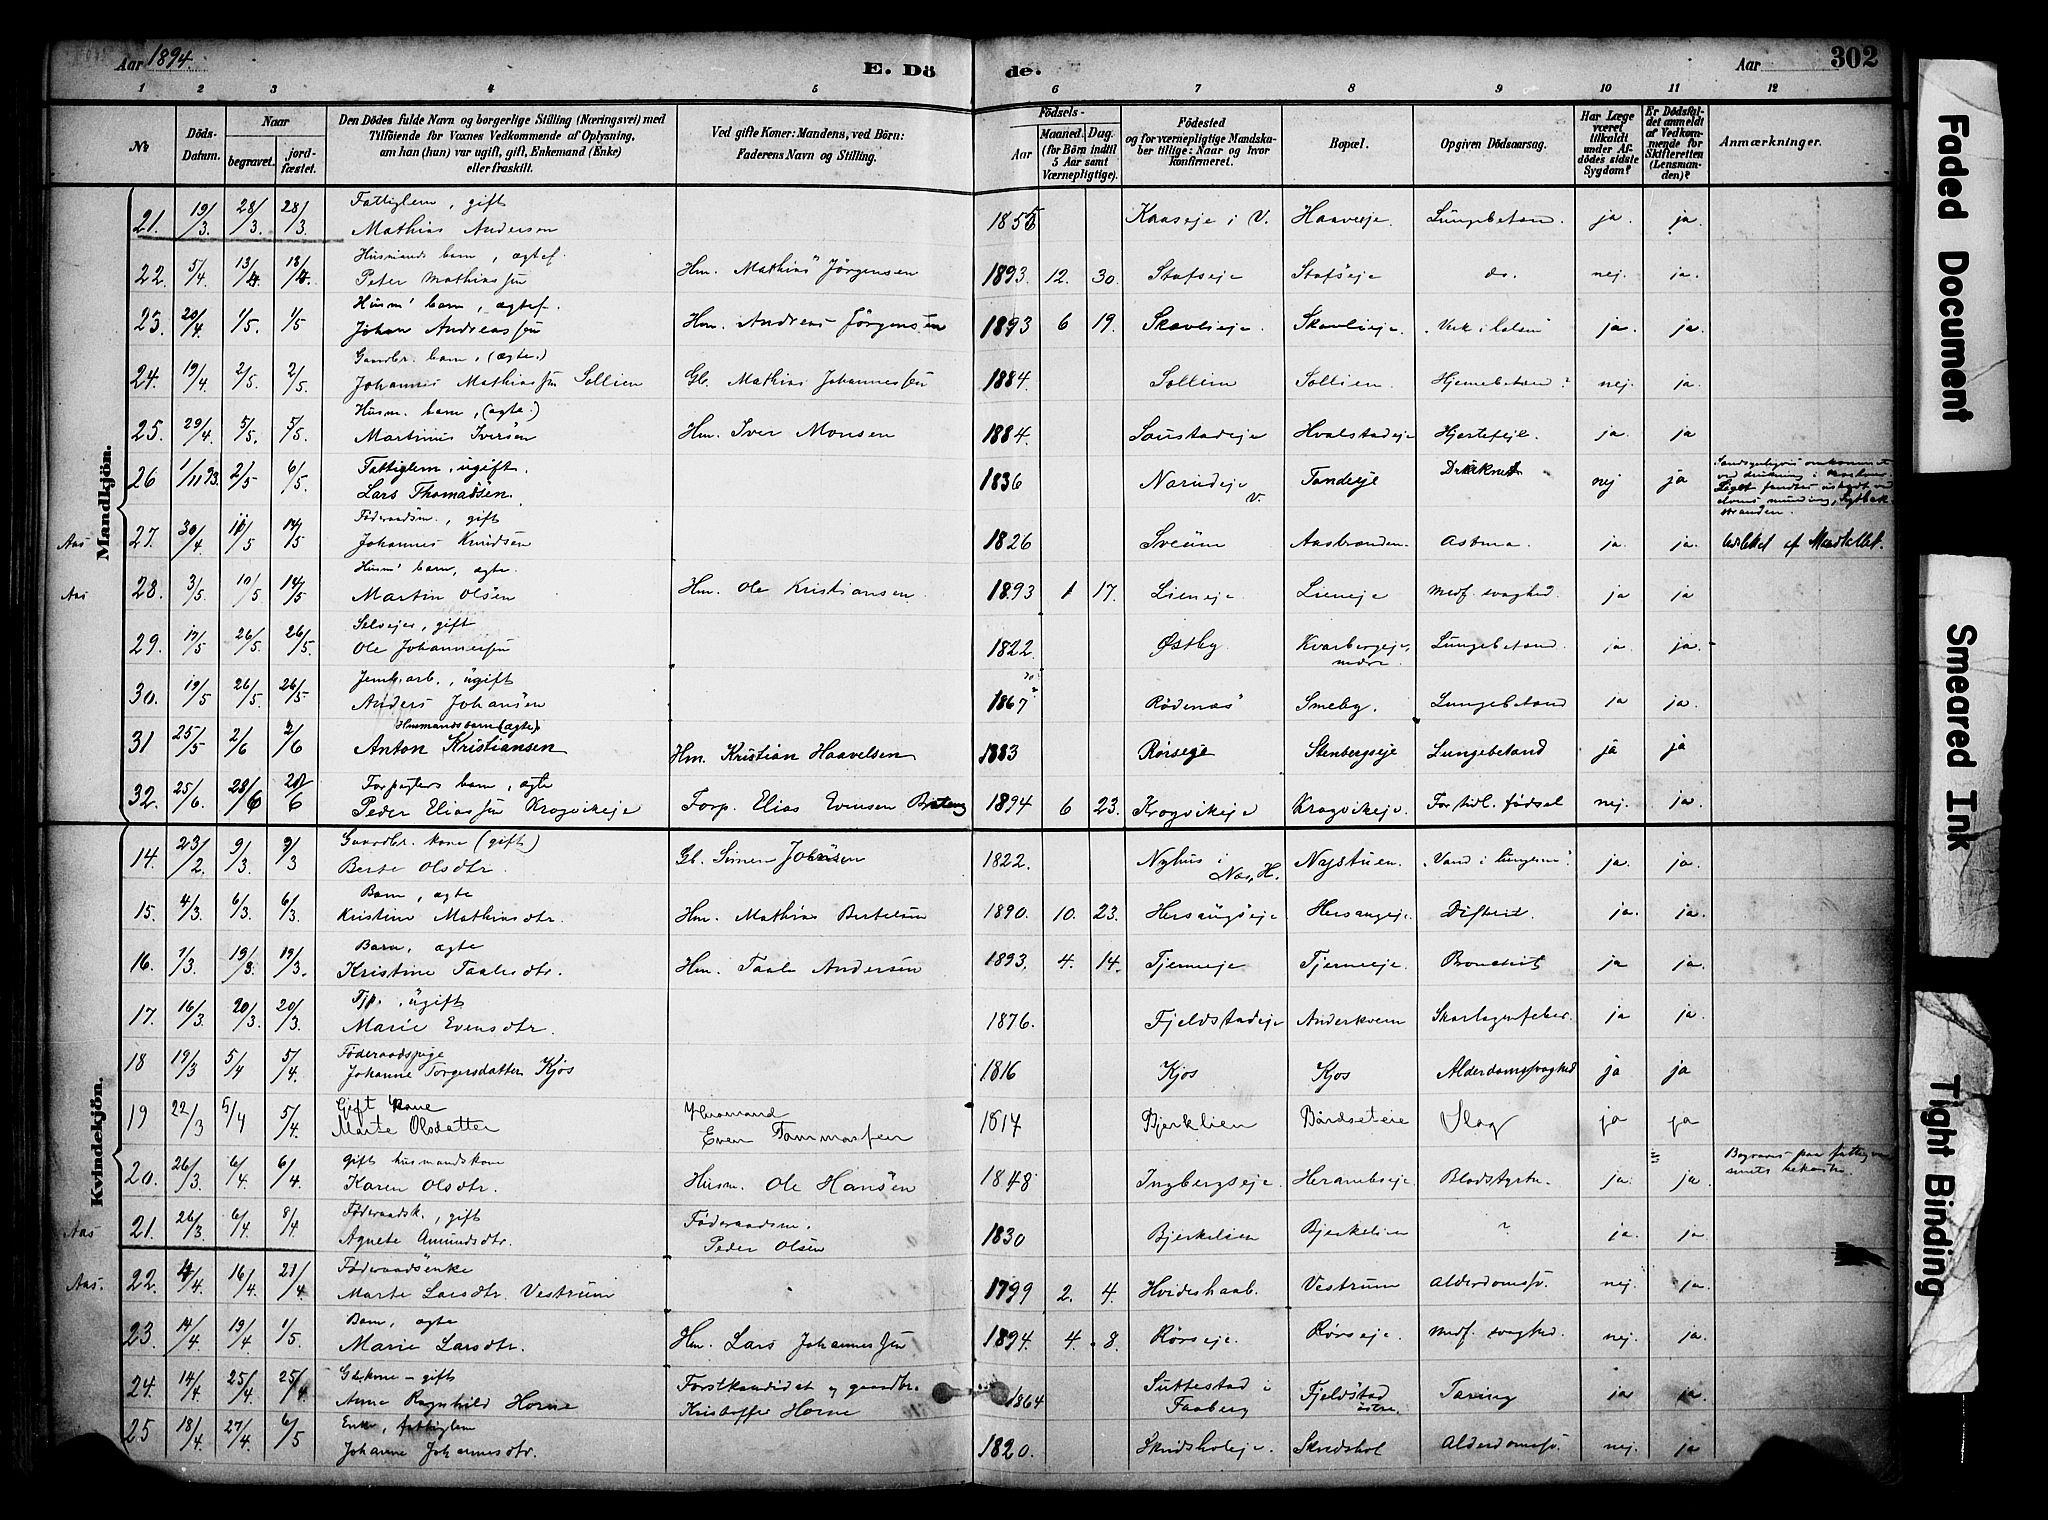 Aar 1894.
E. Dö de.
Aar 302
1 2 3 4 5 6 7 8 9 10 11 12
№
Döds-Datum.
Naar
begravet.
jordfæstet.
Den Dödes fulde Navn og borgerlige Stilling (Næringsvei) med
Tilföiende for Voxnes Vedkommende af Oplysning,
om han (hun) var ugift, gift, Enkemand (Enke)
eller fraskilt.
Ved gifte Koner: Mandens, ved Börn:
Faderens Navn og Stilling.
Födsels-
Aar
Maaned. Dag.
(for Börn indtil
5 Aar samt
Værnepligtige).
Födested
og for værnepligtige Mandskaber tillige: Naar og hvor
konfirmeret.
Bopæl.
Opgiven Dödsaarsag.
Har Læge
været
tilkaldt
under Afdödes sidste
Sygdom?
Er Dödsfaldet anmeldt
af Vedkommende for
Skifteretten
(Lensmanden)?
Anmærkninger.
Mandkjön.
21. 19/3 28/3 28/3 Fattiglem, gift Mathias Andersen 1855 Kaaseje i V. Haaveeje. Lungebetænd. ja. ja
22. 5/4 13/4 13/4 Husmands barn, ægtef. Peter Mathiassen Hm. Mathias Jörgensen 1893 12. 30. Stafseje Stafseje do. nej. ja.
23. 20/4 1/5. 1/5 Husm' barn, ægtef. Johan Andreassen Hm. Andreas Jörgensen 1893 6 19. Skavlieje. Skavlieje. "Verk i halsen" ja. ja.
24. 19/4 2/5. 2/5 Gaardbr. barn, (ægte.) Johannes Mathiassen Sollien Gb. Mathias Johannessen 1884. Sollien Sollien. Hjernebetænd? nej. ja.
25. 29/4 5/5. 5/5 Husm. barn, (ægte.) Martinus Iversen Hm. Iver Monsen 1884. Hvalstadeje Hjertefejl. ja. ja
26 1/11 93 2/5 6/5 Fattiglem, ugift. Lars Thomassen. 1836 V. Druknet nej ja
Aas 27. 30/4 10/5 14/5 Föderaadsm., gift Johannes Knudsen 1826 Sveum Aasbrænden. Astma. ja. ja.
Aas 28. 3/5. 10/5 14/5 Husm' barn, ægte. Martin Olsen Hm. Ole Kristiansen. 1893 1 17. Lieneje. Lieneje Medf. svaghed. ja ja
29 17/5 26/5. 26/5. Selvejer, gift Ole Johannessen 1822. Østby Kvarbergeje, nedre. Lungebetænd. ja ja.
30. 19/5 26/5 26/5 Jernb.arb., ugift Anders Johansen 1867? Rödenæs Smeby. Lungebetænd ja ja.
31 25/5 2/6 2/6 Husmandsbarn (ægte) Anton Kristiansen Hm. Kristian Haavelsen 1883 Rörseje Stenbergseje Lungebetænd ja ja
32. 25/6. 28/6 28/6 Forpagters barn, ægte Peder Eliassen Krogvikeje Forp. Elias Evensen Braten 1894 6 23. Krogvikeje Krogvikeje. For tidl. födsel nej. ja.
Kvindekjön.
14. 23/2 9/3 9/3 Gaardbr. kone (gift) Berte Olsdtr. Gb. Simen Johnsen 1822. Nyhus i Næs, H. Nystuen. "Vand i lungerne" ja. ja.
15. 4/3 6/3 6/3 Barn, ægte Kristine Mathiasdtr. Hm. Mathias Bertelsen 1890. 10. 23. Hersangseje. Hersangeje. Difterit. ja. ja.
16. 7/3. 19/3 19/3. Barn, ægte Kristine Taalesdtr. Hm. Taale Andersen 1893. 4. 14. Tjerneeje Tjerneeje. Bronchit ja ja.
17. 16/3 20/3. 20/3 Tjp., ugift Marie Evensdtr. 1876. Fjeldstadeje Anderkvern Skarlagensfeber. ja ja.
18 19/3 5/4 5/4. Föderaadspige Johanne Torgersdatter Kjos 1816 Kjos Kjos Alderdomssvaghed ja ja
19 22/3 5/4 5/4. Gift kone Marte Olsdatter Husmand Even Tommassen 1814 Bjerklien Bördseteie Slag ja ja
20. 26/3 6/4. 6/4 gift husmandskone Karen Olsdtr. Husm. Ole Hansen 1848 Ingbergseje. Blodstyrtn. ja. ja.
Aas 21. 26/3 6/4 8/4 Föderaadsk., gift Agnete Amundsdtr. Föderaadsm. Peder Olsen 1830 Bjerkelien Bjerkelien ? ja. ja.
Aas. 22. 4/4 16/4 21/4 Föderaadsenke Marte Larsdtr. Vestrum 1799 2. 4. Hvideshaab. Vestrum Alderdomssv. nej. ja.
23. 14/4 19/4 1/5 Barn, ægte Marie Larsdtr. Hm. Lars Johannessen 1894. 4. 8. Rörseje. Rörseje. Medf. svaghed. nej. ja.
24. 14/4 25/4 25/4 Gbkone – gift Anne Ragnhild Horne Forstkandidat og gaardbr. Kristoffer Horne 1864 Suttestad i Faaberg Fjeldstad östre. Tæring ja ja
25 18/4. 27/4. 6/5 Enke, fattiglem Johanne Johannesdtr. 1820. Skredsholeje. Skredshol Alderdomssv. nej. ja
Faded Document
Smeared Ink
Tight Binding